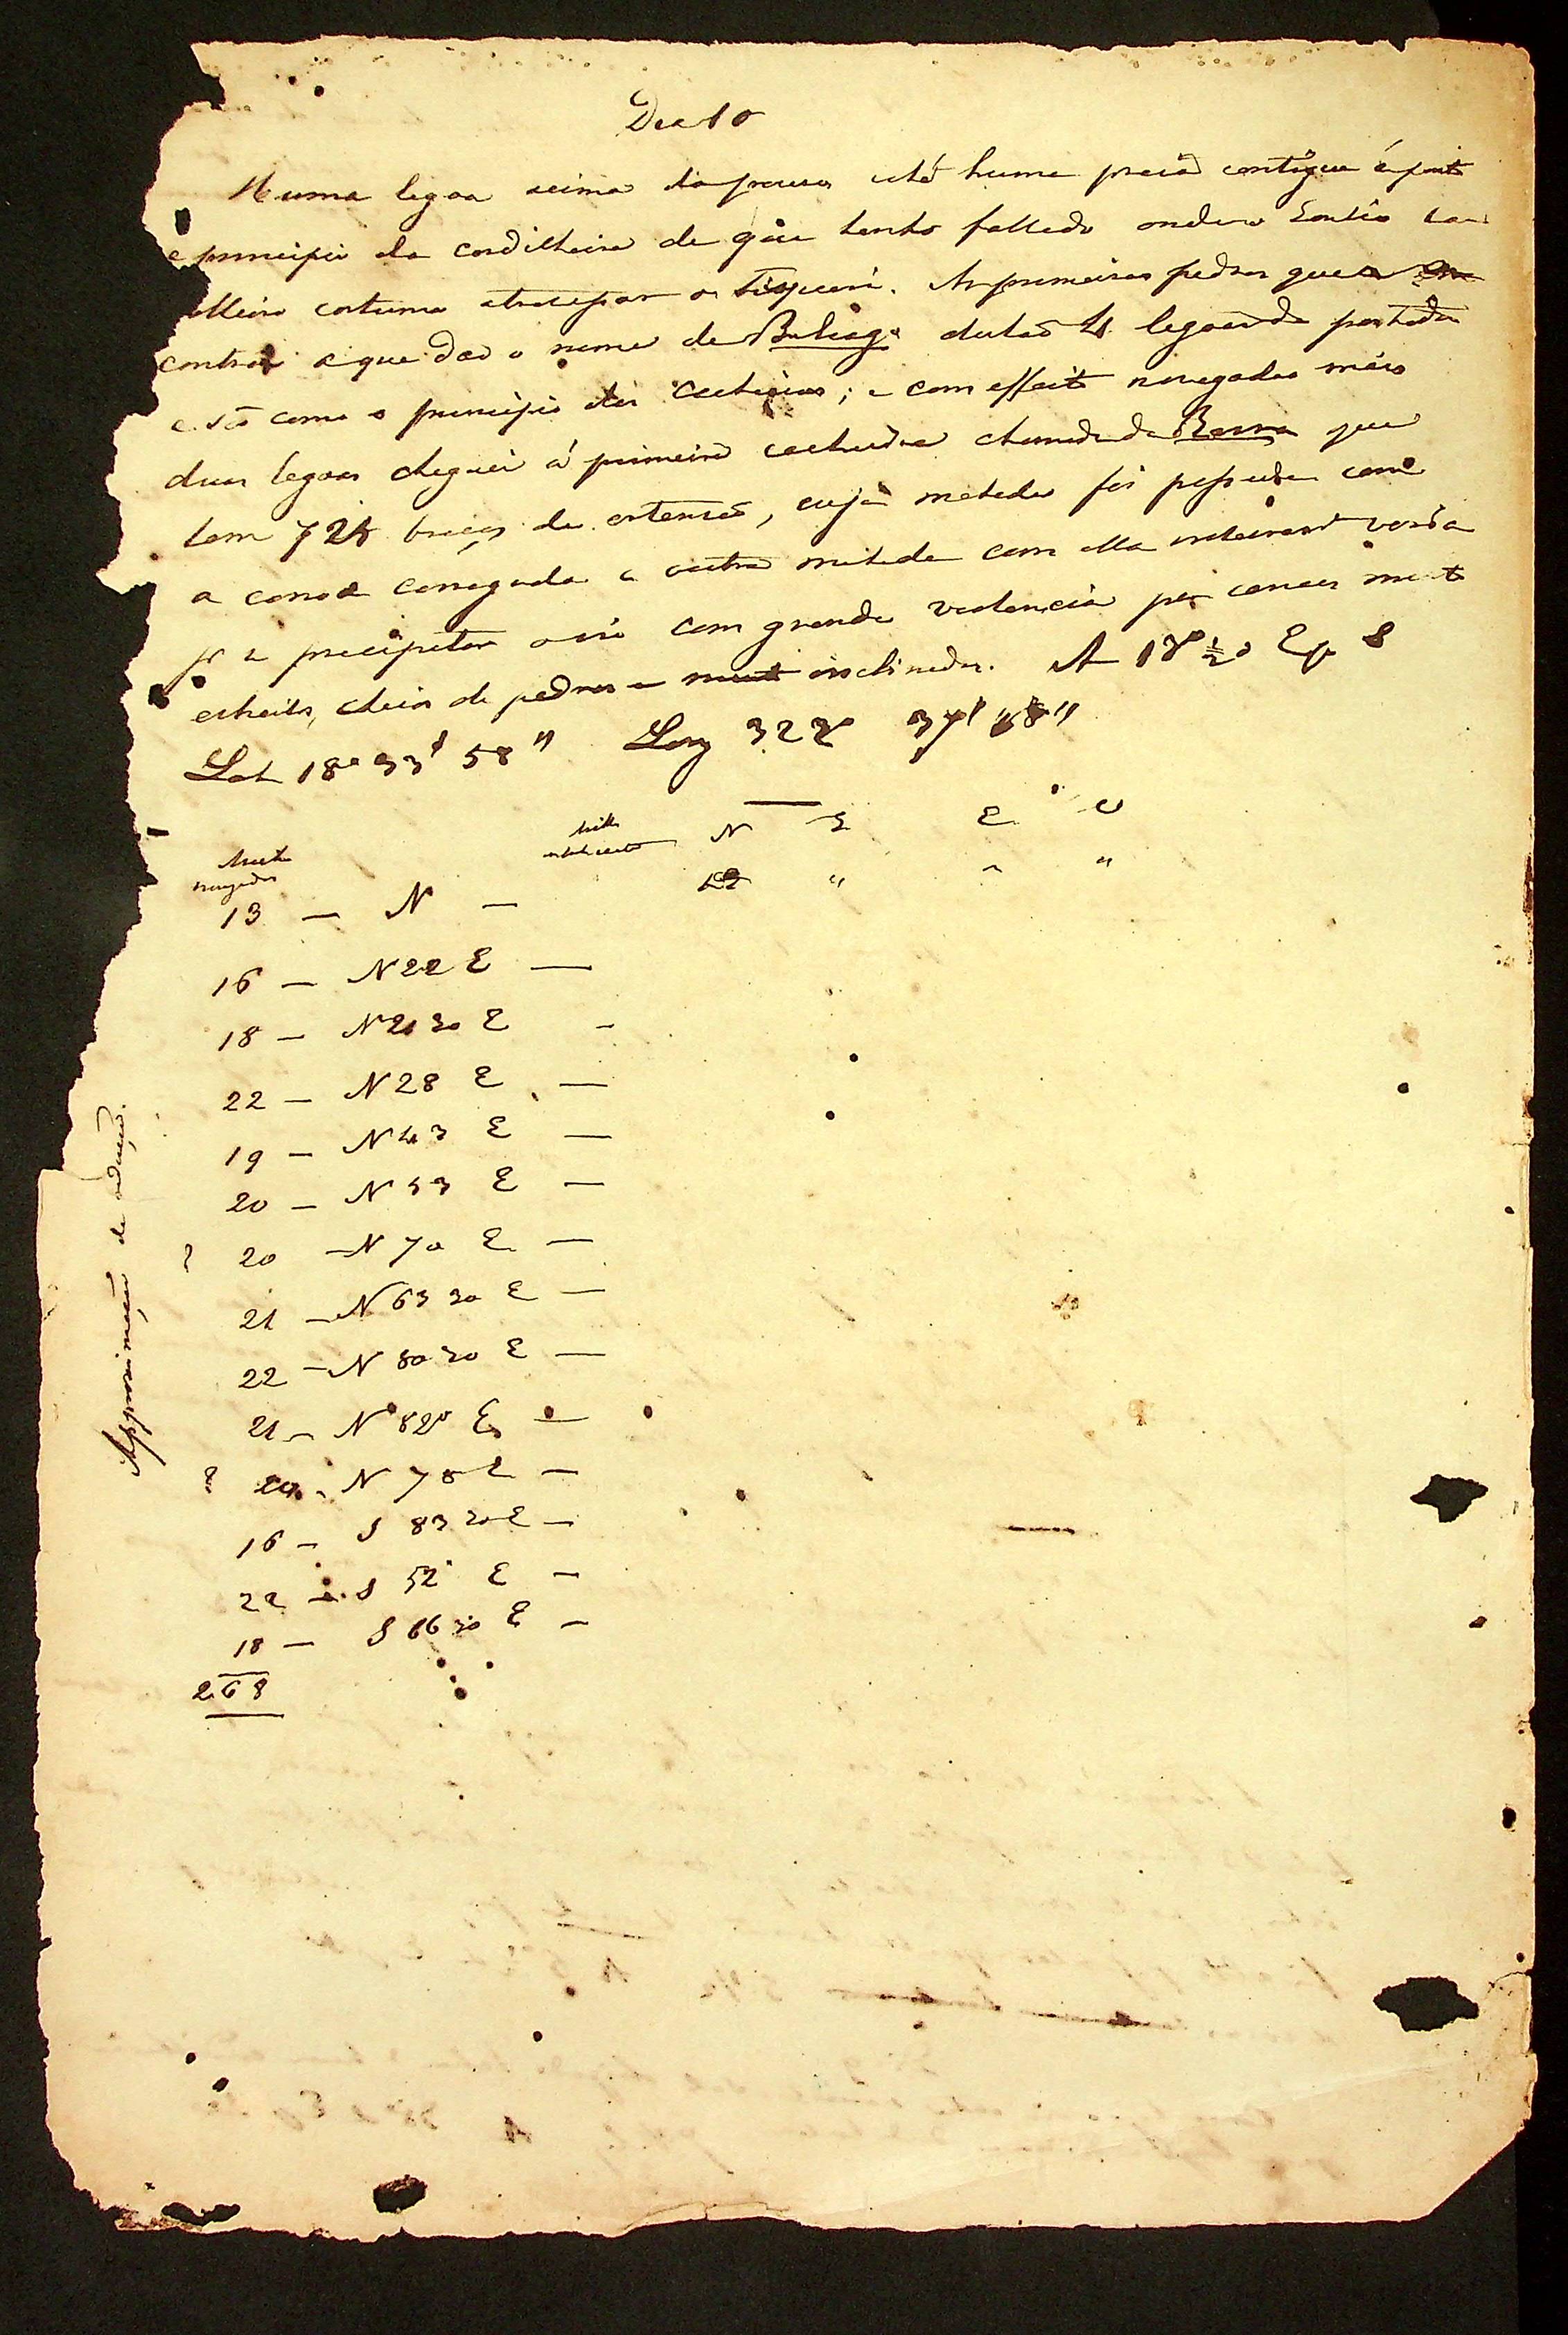 Dia 10
Huma legoa acima do pouso está huma praia contigua á pont
e principio da cordilheira de que tenho fallado onde o Gentio ca
valleiro costuma atravessar o Taquari. As primeiras pedras que se en
contrão a que dão o nome de Beliago distão 4 legoas da
e são como o principio das Cachoeiras; e com effeito navegadas mais
duas legoas cheguei á primeira cachoeira chamada da Barra que
tem 725 braças de extensão, cuja metade foi passada com
a canoa carregada e outra metade com ella inteiramte vasia
pr se precipitar o rio com grande violencia por canaes mt
estreitos, cheios de pedras e inclinados. A 18° ½
Lat 18° 33' 58" Long 322° 37' 18"
Minut navegados
N S E O
13 — N —
16 — N 22 E —
18 — N 20 30 E —
22 — N 28 E —
19 — N 43 E —
20 — N 53 E —
? 20 — N 70 E —
21 — N 63 30 E —
22 — N 80 30 E —
21 — N 82° E —
? 20 — N 78 E —
16 — S 83 30 E —
22 — S 52 E —
18 — S 66 30 E —
268
Approximação de redução.